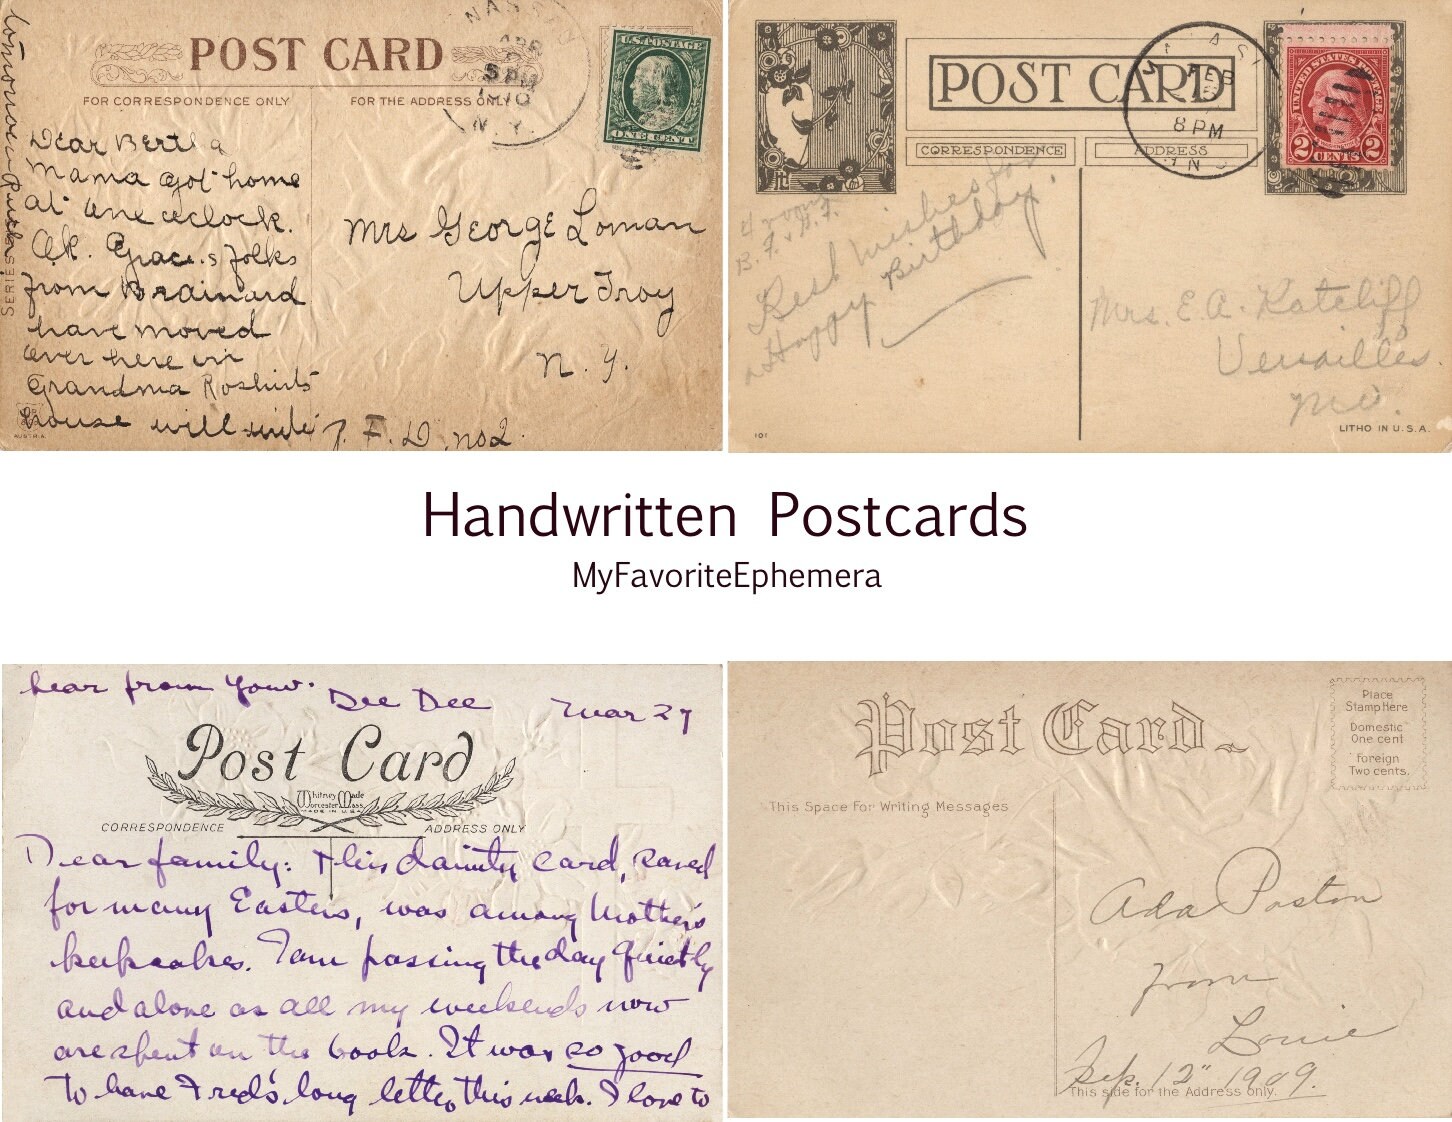 POST CARD
FOR CORRESPONDENCE ONLY
FOR THE ADDRESS ONLY
NAS
APR
5 PM
1910
N.Y.
U.S. POSTAGE
Dear Bertha
Mama got home
at one oclock.
O.K. Grace.s folks
from Brainard
have moved
over here in
Grandma Roshirts
house will write
tomorrow Ruth
SERIES
Mrs George Loman
Upper Troy
N. Y.
F. D. no 2.
POST CARD
CORRESPONDENCE
ADDRESS
FEB
8 PM
UNITED STATES POSTAGE
2 CENTS 2
Best wishes for
a Happy Birthday.
Mrs. E. A. Ratcliff
Versailles
Mo.
101
LITHO IN U.S.A.
Handwritten Postcards
MyFavoriteEphemera
hear from you. Dee Dee Mar 27
Post Card
Whitney Made
Worcester, Mass.
MADE IN U.S.A.
CORRESPONDENCE
ADDRESS ONLY
Dear family: This dainty card, saved
for many Easters, was among Mother's
keepsakes. I am passing the day quietly
and alone as all my weekends now
are spent on the book. It was so good
to have Fred's long letter this week. I love to
Post Card
Place
Stamp Here
Domestic
One cent
foreign
Two cents.
This Space For Writing Messages
Ada Poston
from
Lonie
Sep. 12" 1909.
This side for the Address only.